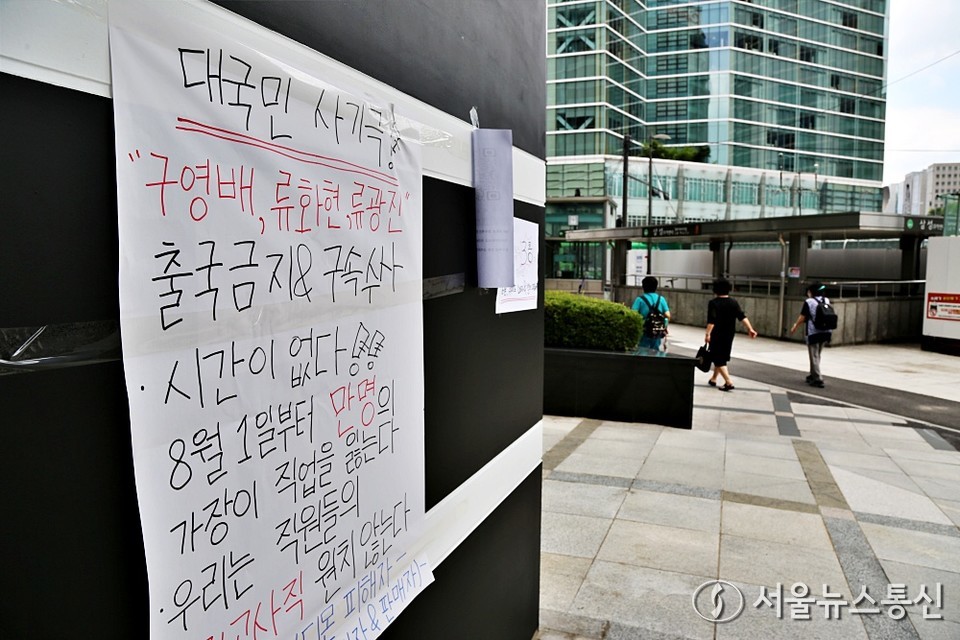 대국민 사기극!
"구영배, 류화현, 류광진"
출국금지 & 구속수사
· 시간이 없다
8월 1일부터 만명의
가장이 직업을 잃는다
· 우리는 직원들의
사직 원치 않는다
피해자
& 판매자)-
서울뉴스통신